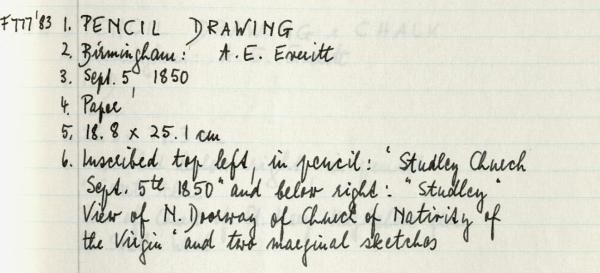 F777'83 1. PENCIL DRAWING
2. Birmingham: A. E. Everitt
3. Sept. 5 1850
4. Paper
5. 18.8 x 25.1 cm
6. Inscribed top left, in pencil: "Studley Church
Sept. 5th 1850" and below right: "Studley"
View of N. Doorway of Church of Nativity of
the Virgin" and two marginal sketches